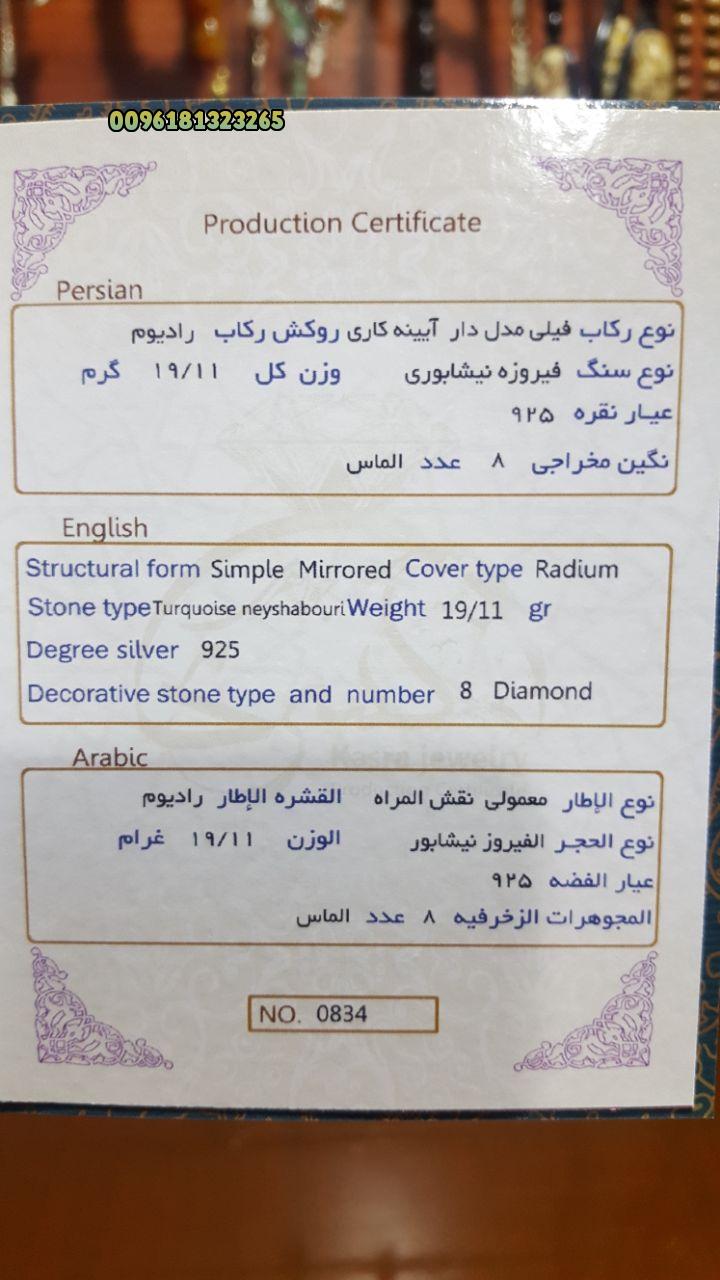 0096181323265
Production Certificate
Persian
نوع رکاب فیلی مدل دار آیینه کاری روکش رکاب رادیوم
نوع سنگ فیروزه نیشابوری وزن کل ۱۹/۱۱ گرم
عیار نقره ۹۲۵
نگین مخراجی ۸ عدد الماس
English
Structural form Simple Mirrored Cover type Radium
Stone type Turquoise neyshabouri Weight 19/11 gr
Degree silver 925
Decorative stone type and number 8 Diamond
Kasra jewelry
Arabic
نوع الإطار معمولی نقش المراه القشره الإطار رادیوم
نوع الحجر الفیروز نیشابور الوزن ۱۹/۱۱ غرام
عیار الفضه ۹۲۵
المجوهرات الزخرفیه ۸ عدد الماس
NO. 0834